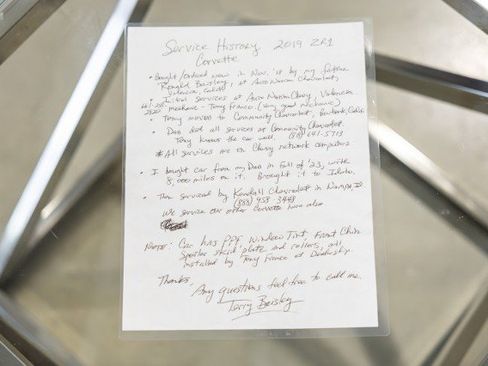 Service History 2019 ZR1
Corvette
• Bought/ordered new in Nov. '18 by my father
Ronald Beisley, at Auto Nation Chevrolet,
Valencia, Calif.
Initial services at Auto Nation Chevy, Valencia
mechanic - Tony Franco. (Very good Mechanic)
• Tony moved to Community Chevrolet, Burbank, Calif.
• Dad did all services at Community Chevrolet.
Tony knows the car well. (818) 641-5713
* All services are on Chevy network computers
• I bought car from my Dad in Fall of '23, with
8,000 miles on it. Brought it to Idaho.
• Then serviced by Kendall Chevrolet in Nampa, ID
(888) 458-3448
We service our other Corvette here also
Note: Car has PPF, Window Tint, Front Chin
Spoiler skid plate and rollers, all
installed by Tony Franco at Dealership.
Thanks,
Any questions feel free to call me.
Terry Beisley